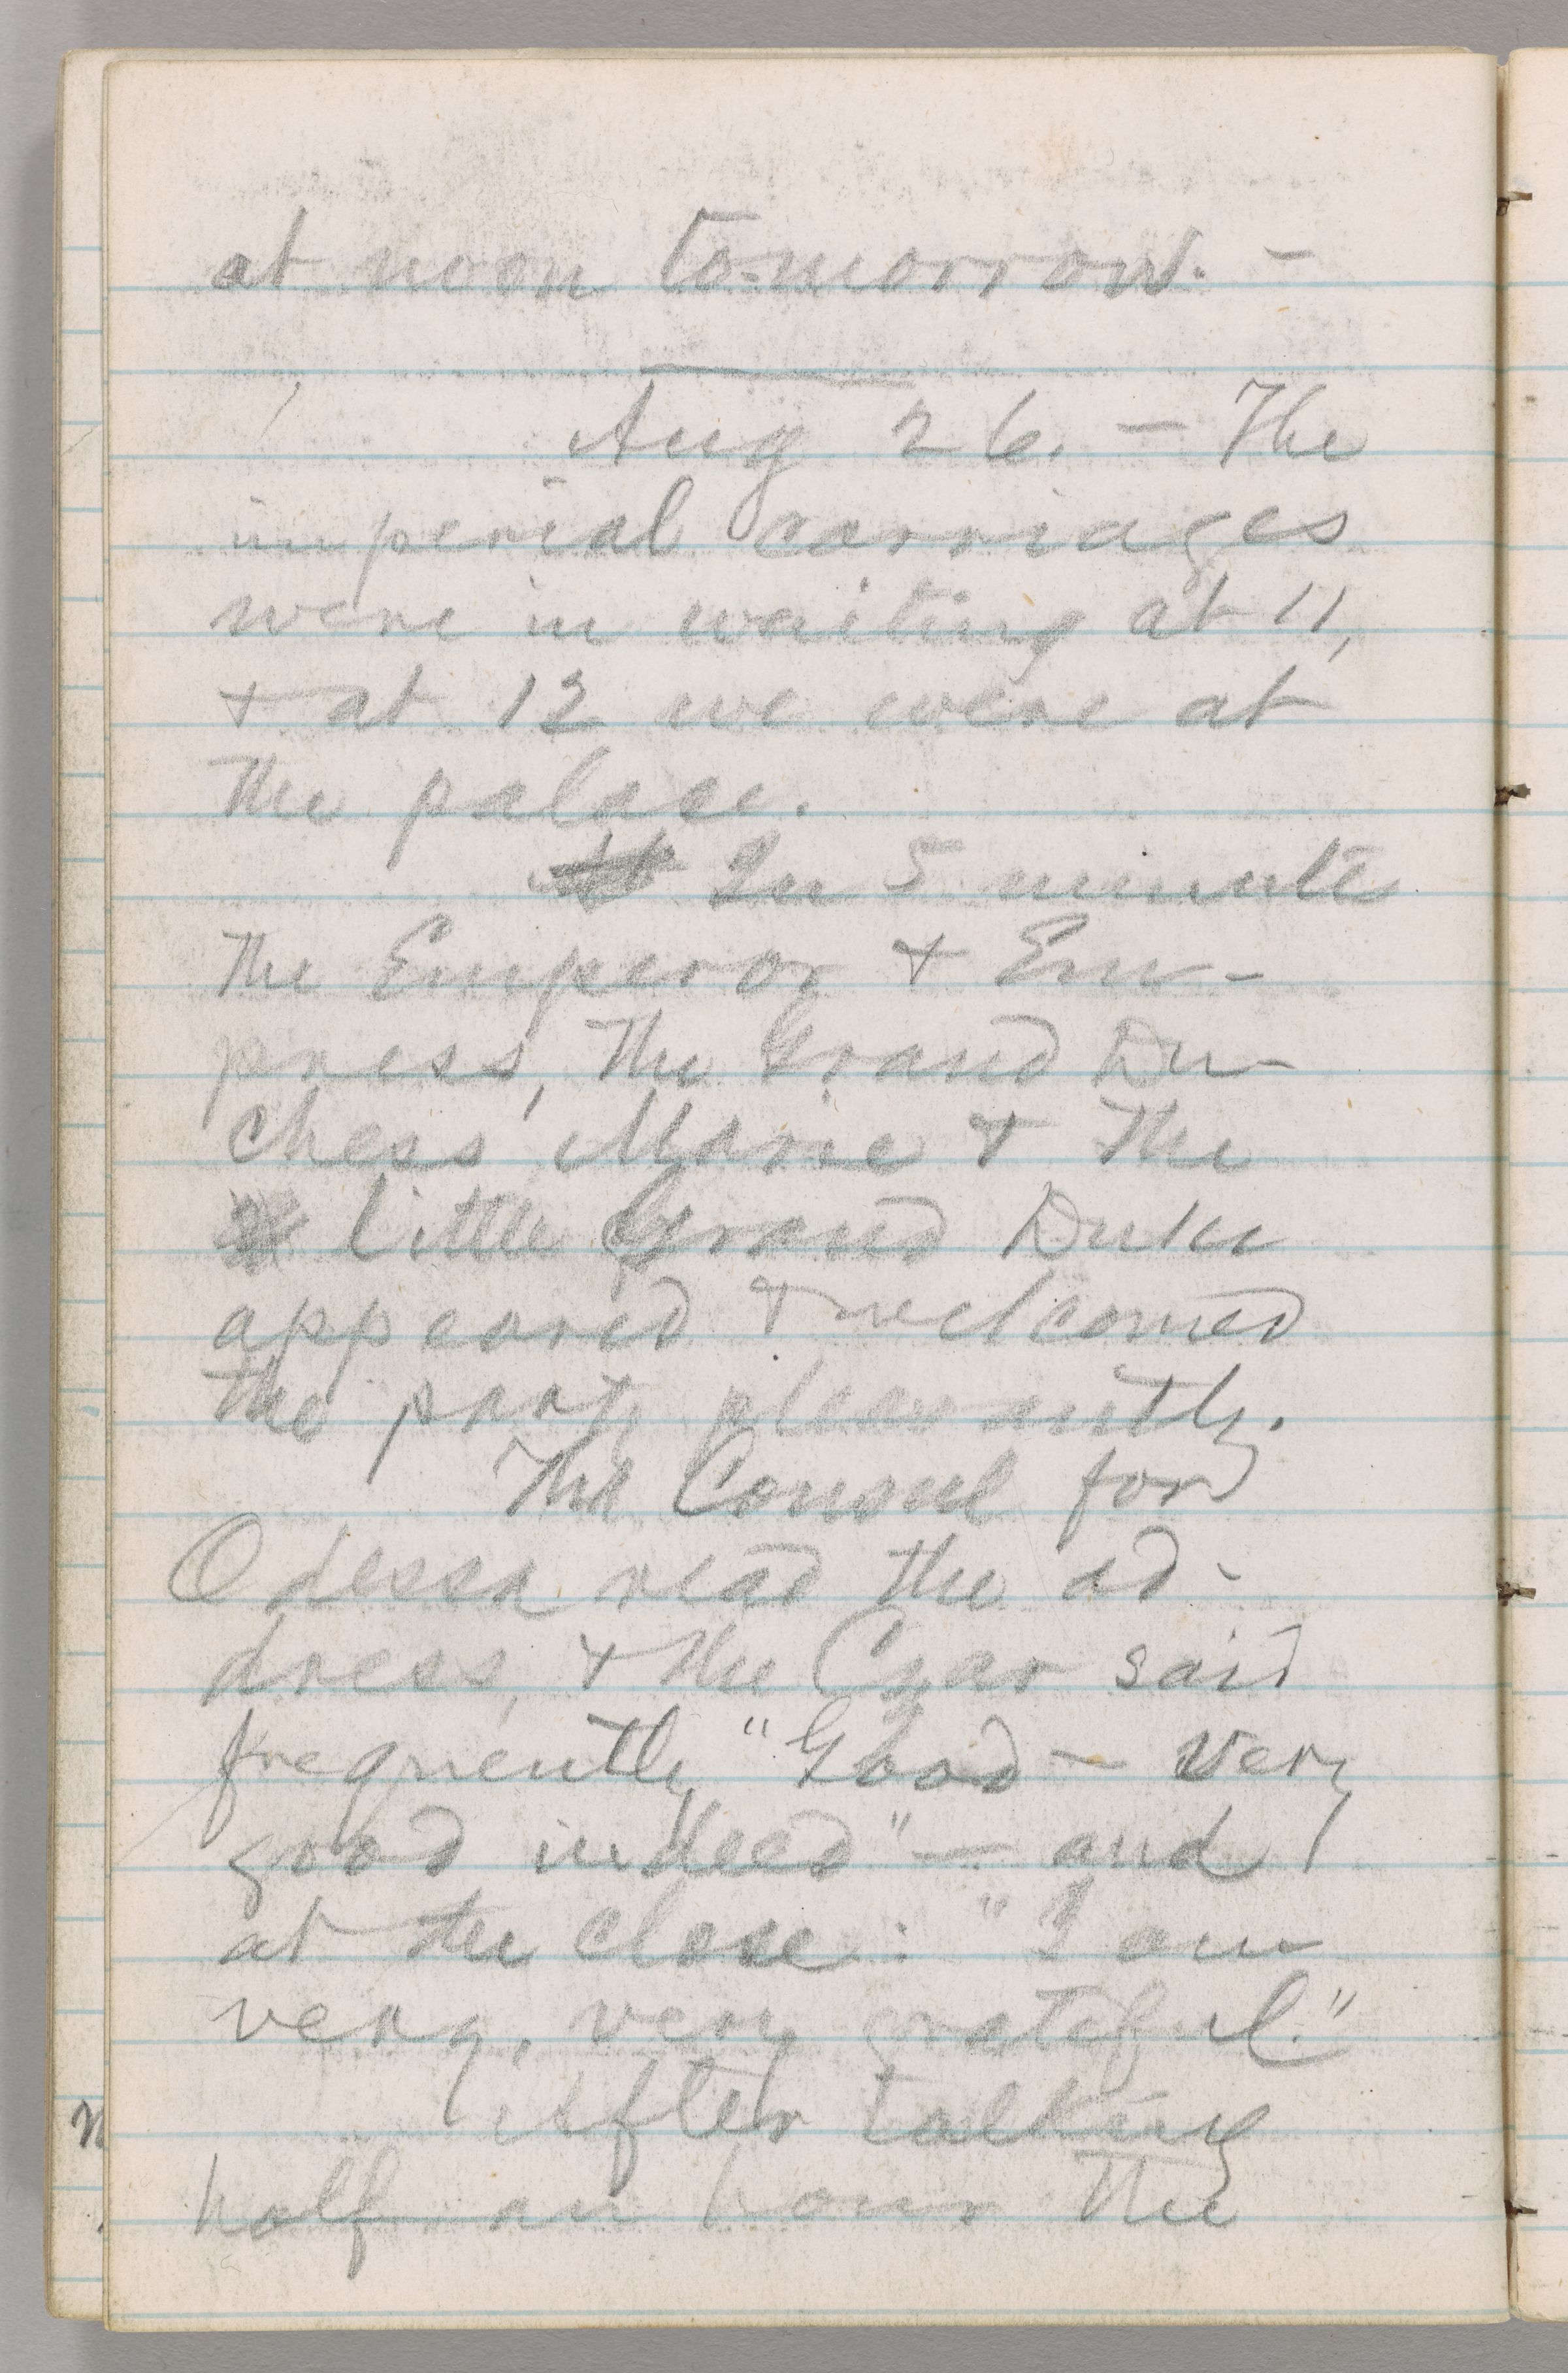 at noon to-morrow. —
Aug 26. — The
imperial carriages
were in waiting at 11,
& at 12 we were at
the palace.
In 5 minute
the Emperor & Em-
press, the Grand Du-
chess Marie & the
little Grand Duke
appeared & welcomed
the party pleasantly.
The Consul for
Odessa read the ad-
dress, & the Czar said
frequently "Good — very
good indeed" — and
at the close: "I am
very, very grateful."
After talking
half an hour the